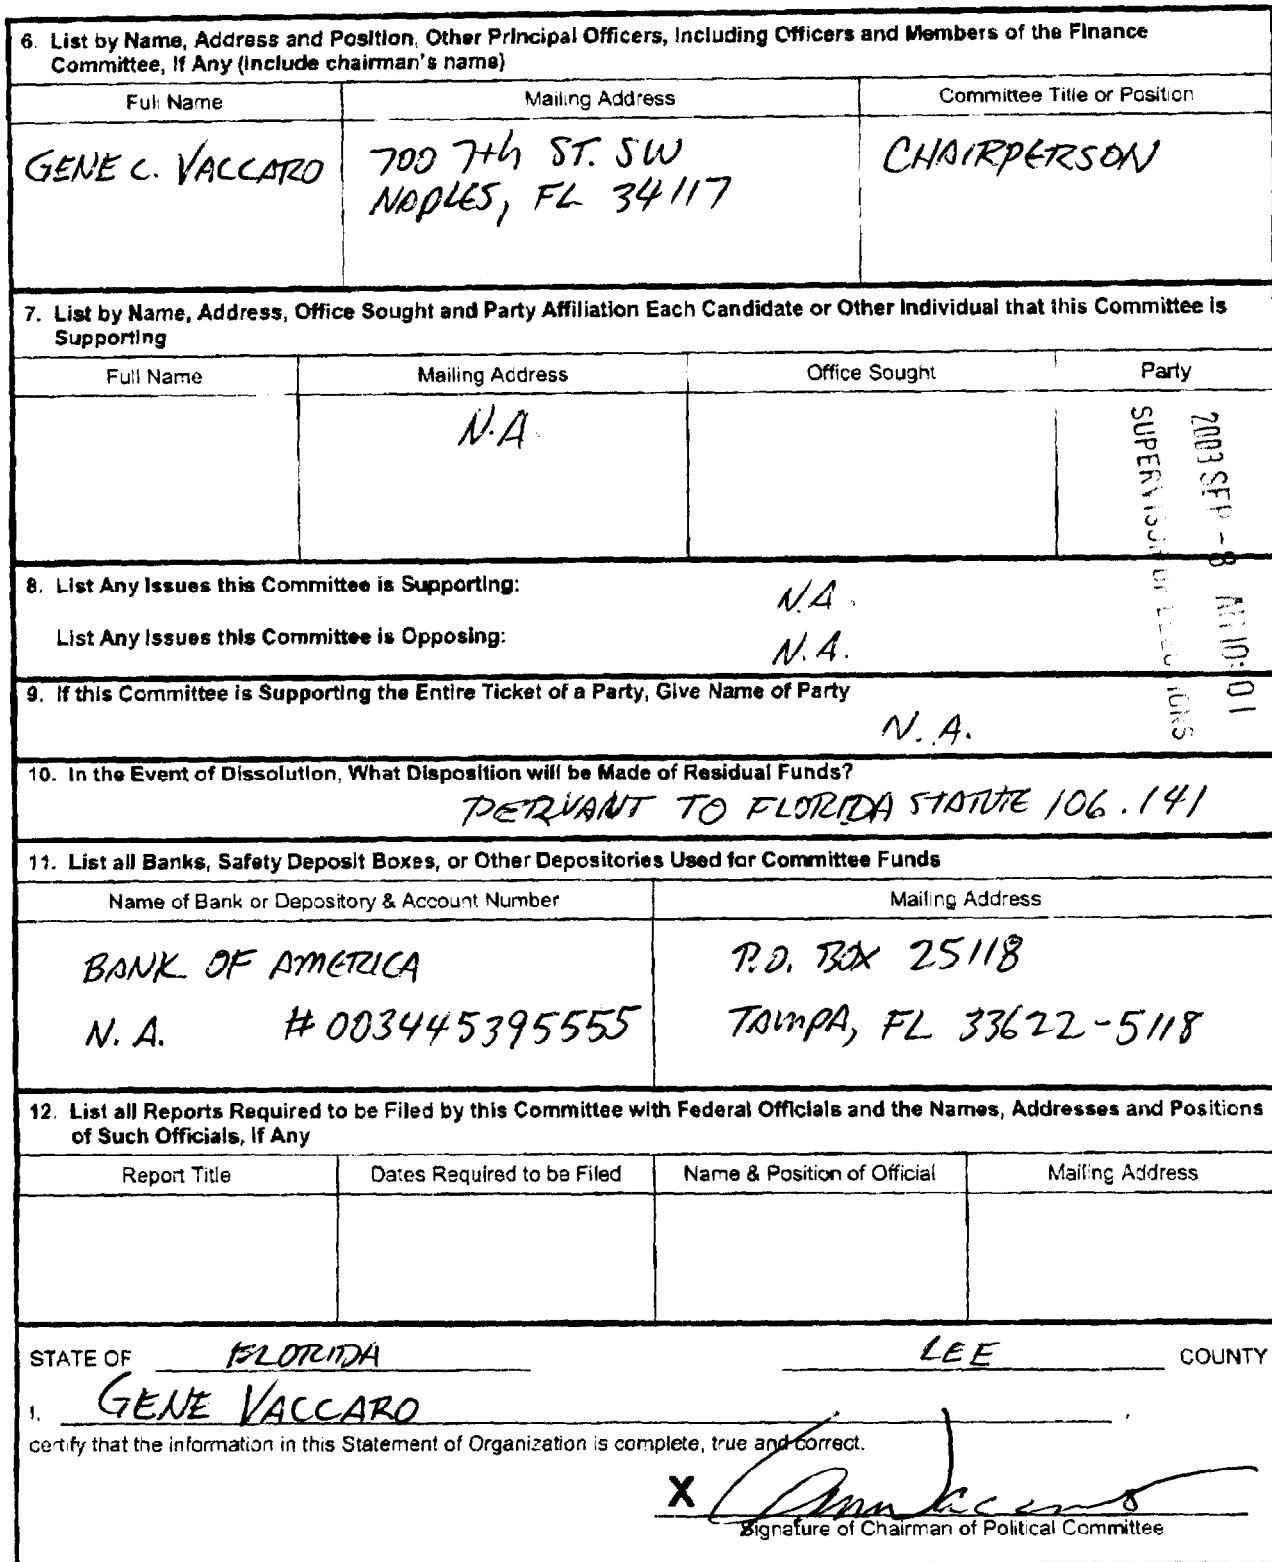 6. List by Name, Address and Position, Other Principal Officers, Including Officers and Members of the Finance
Committee, If Any (Include chairman's name)
Full Name Mailing Address Committee Title or Position
GENE C. VACCARO 700 7th ST. SW CHAIRPERSON
NAPLES, FL 34117
7. List by Name, Address, Office Sought and Party Affiliation Each Candidate or Other Individual that this Committee is
Supporting
Full Name Mailing Address Office Sought Party
N.A.
2003 SEP -8 AM 10:01
SUPERVISOR OF ELECTIONS
8. List Any Issues this Committee is Supporting: N.A.
List Any Issues this Committee is Opposing: N.A.
9. If this Committee is Supporting the Entire Ticket of a Party, Give Name of Party
N.A.
10. In the Event of Dissolution, What Disposition will be Made of Residual Funds?
PERVANT TO FLORIDA STATUTE 106.141
11. List all Banks, Safety Deposit Boxes, or Other Depositories Used for Committee Funds
Name of Bank or Depository & Account Number Mailing Address
BANK OF AMERICA P.O. BOX 25118
N.A. #003445395555 TAMPA, FL 33622-5118
12. List all Reports Required to be Filed by this Committee with Federal Officials and the Names, Addresses and Positions
of Such Officials, If Any
Report Title Dates Required to be Filed Name & Position of Official Mailing Address
STATE OF FLORIDA LEE COUNTY
I, GENE VACCARO ,
certify that the information in this Statement of Organization is complete, true and correct.
X
Signature of Chairman of Political Committee